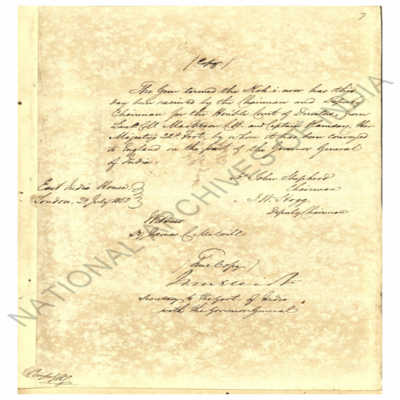 7
(Copy)
The Gem termed the Kohi noor has this
day been received by the Chairman and Deputy
Chairman for the Honble Court of Directors from
Lieut Coll Mackeson CB and Captain Ramsay Her
Majesty's 22d Foot, by whom it has been conveyed
to England on the part of the Governor General
of India.
John Shepherd
Chairman
East India House,
London, July 1850
J.W. Hogg
Deputy Chairman
Witness
James C. Melvill
(True Copy)
Secretary to the Govt of India
with the Governor General
NATIONAL ARCHIVES OF INDIA